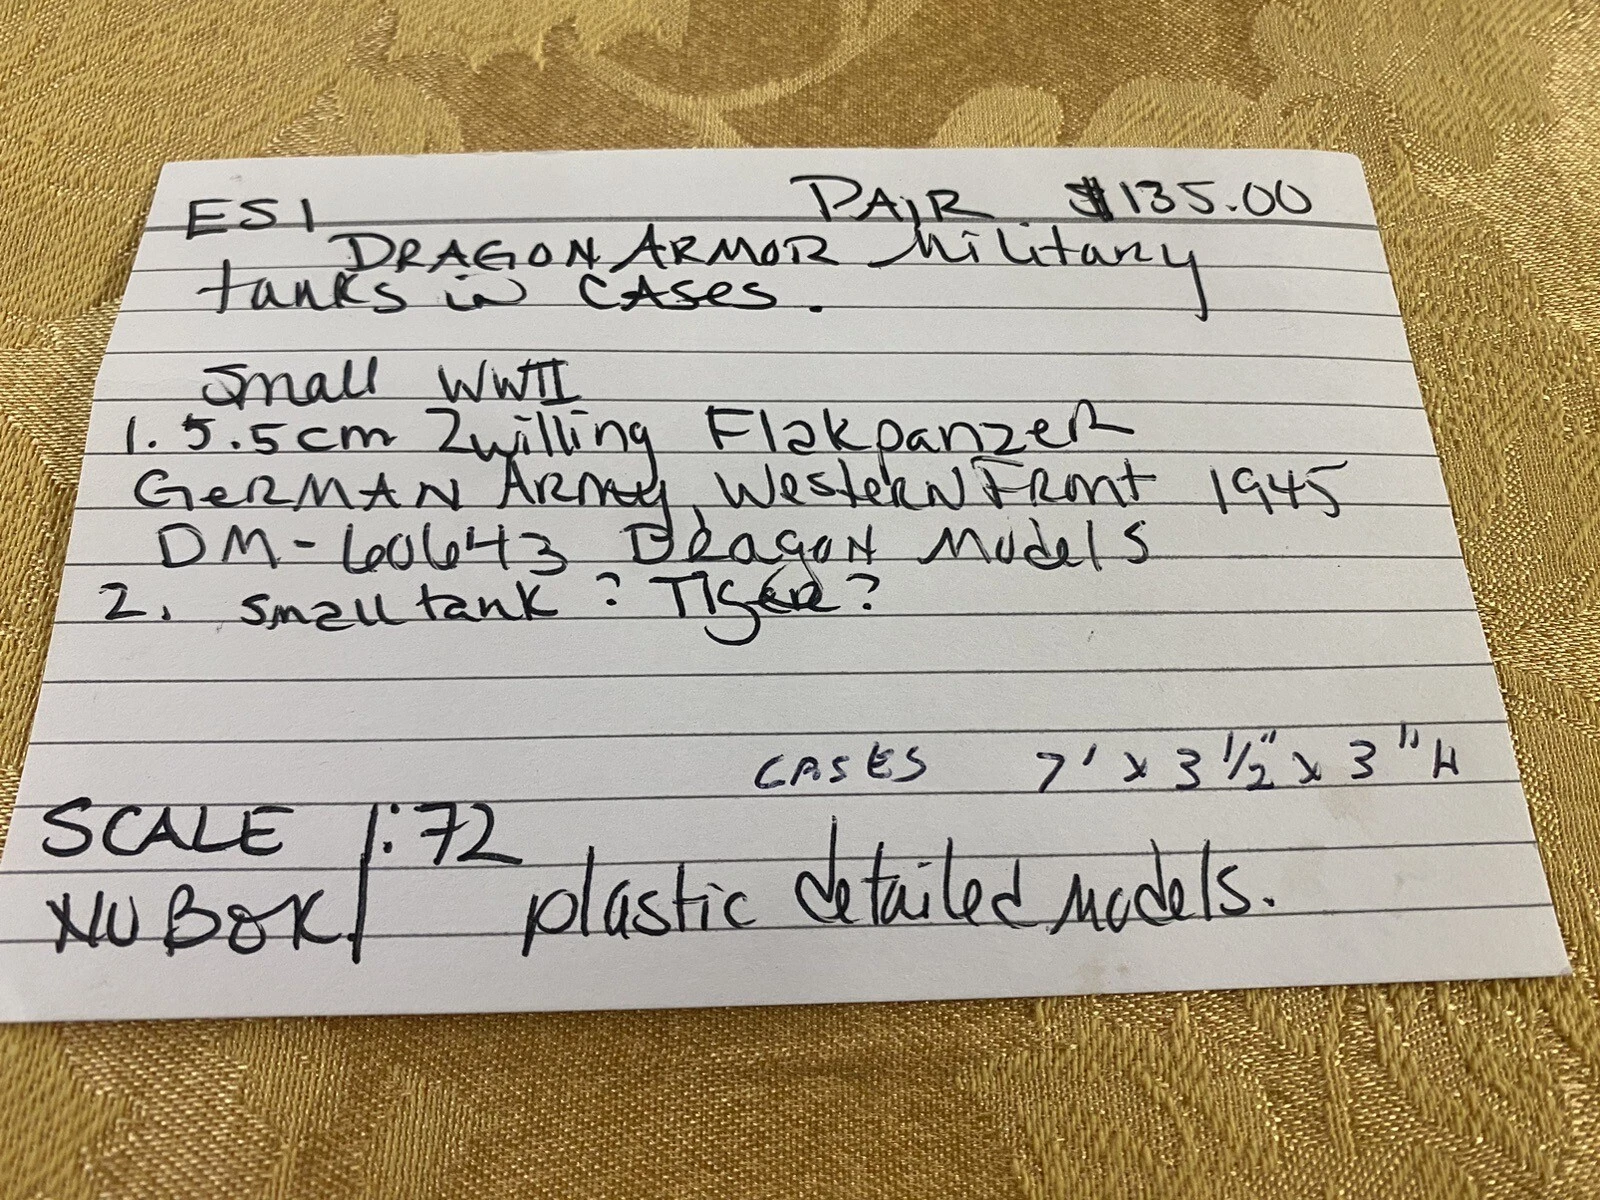 ES1 PAIR $135.00
DRAGON ARMOR Military
tanks in CASES.
Small WWII
1. 5.5cm Zwilling Flakpanzer
GERMAN ARMY, WESTERN FRONT 1945
DM-60643 Dragon Models
2. small tank? TIGER?
CASES 7' x 3 1/2" x 3" H
SCALE 1:72
NO BOX! plastic detailed models.